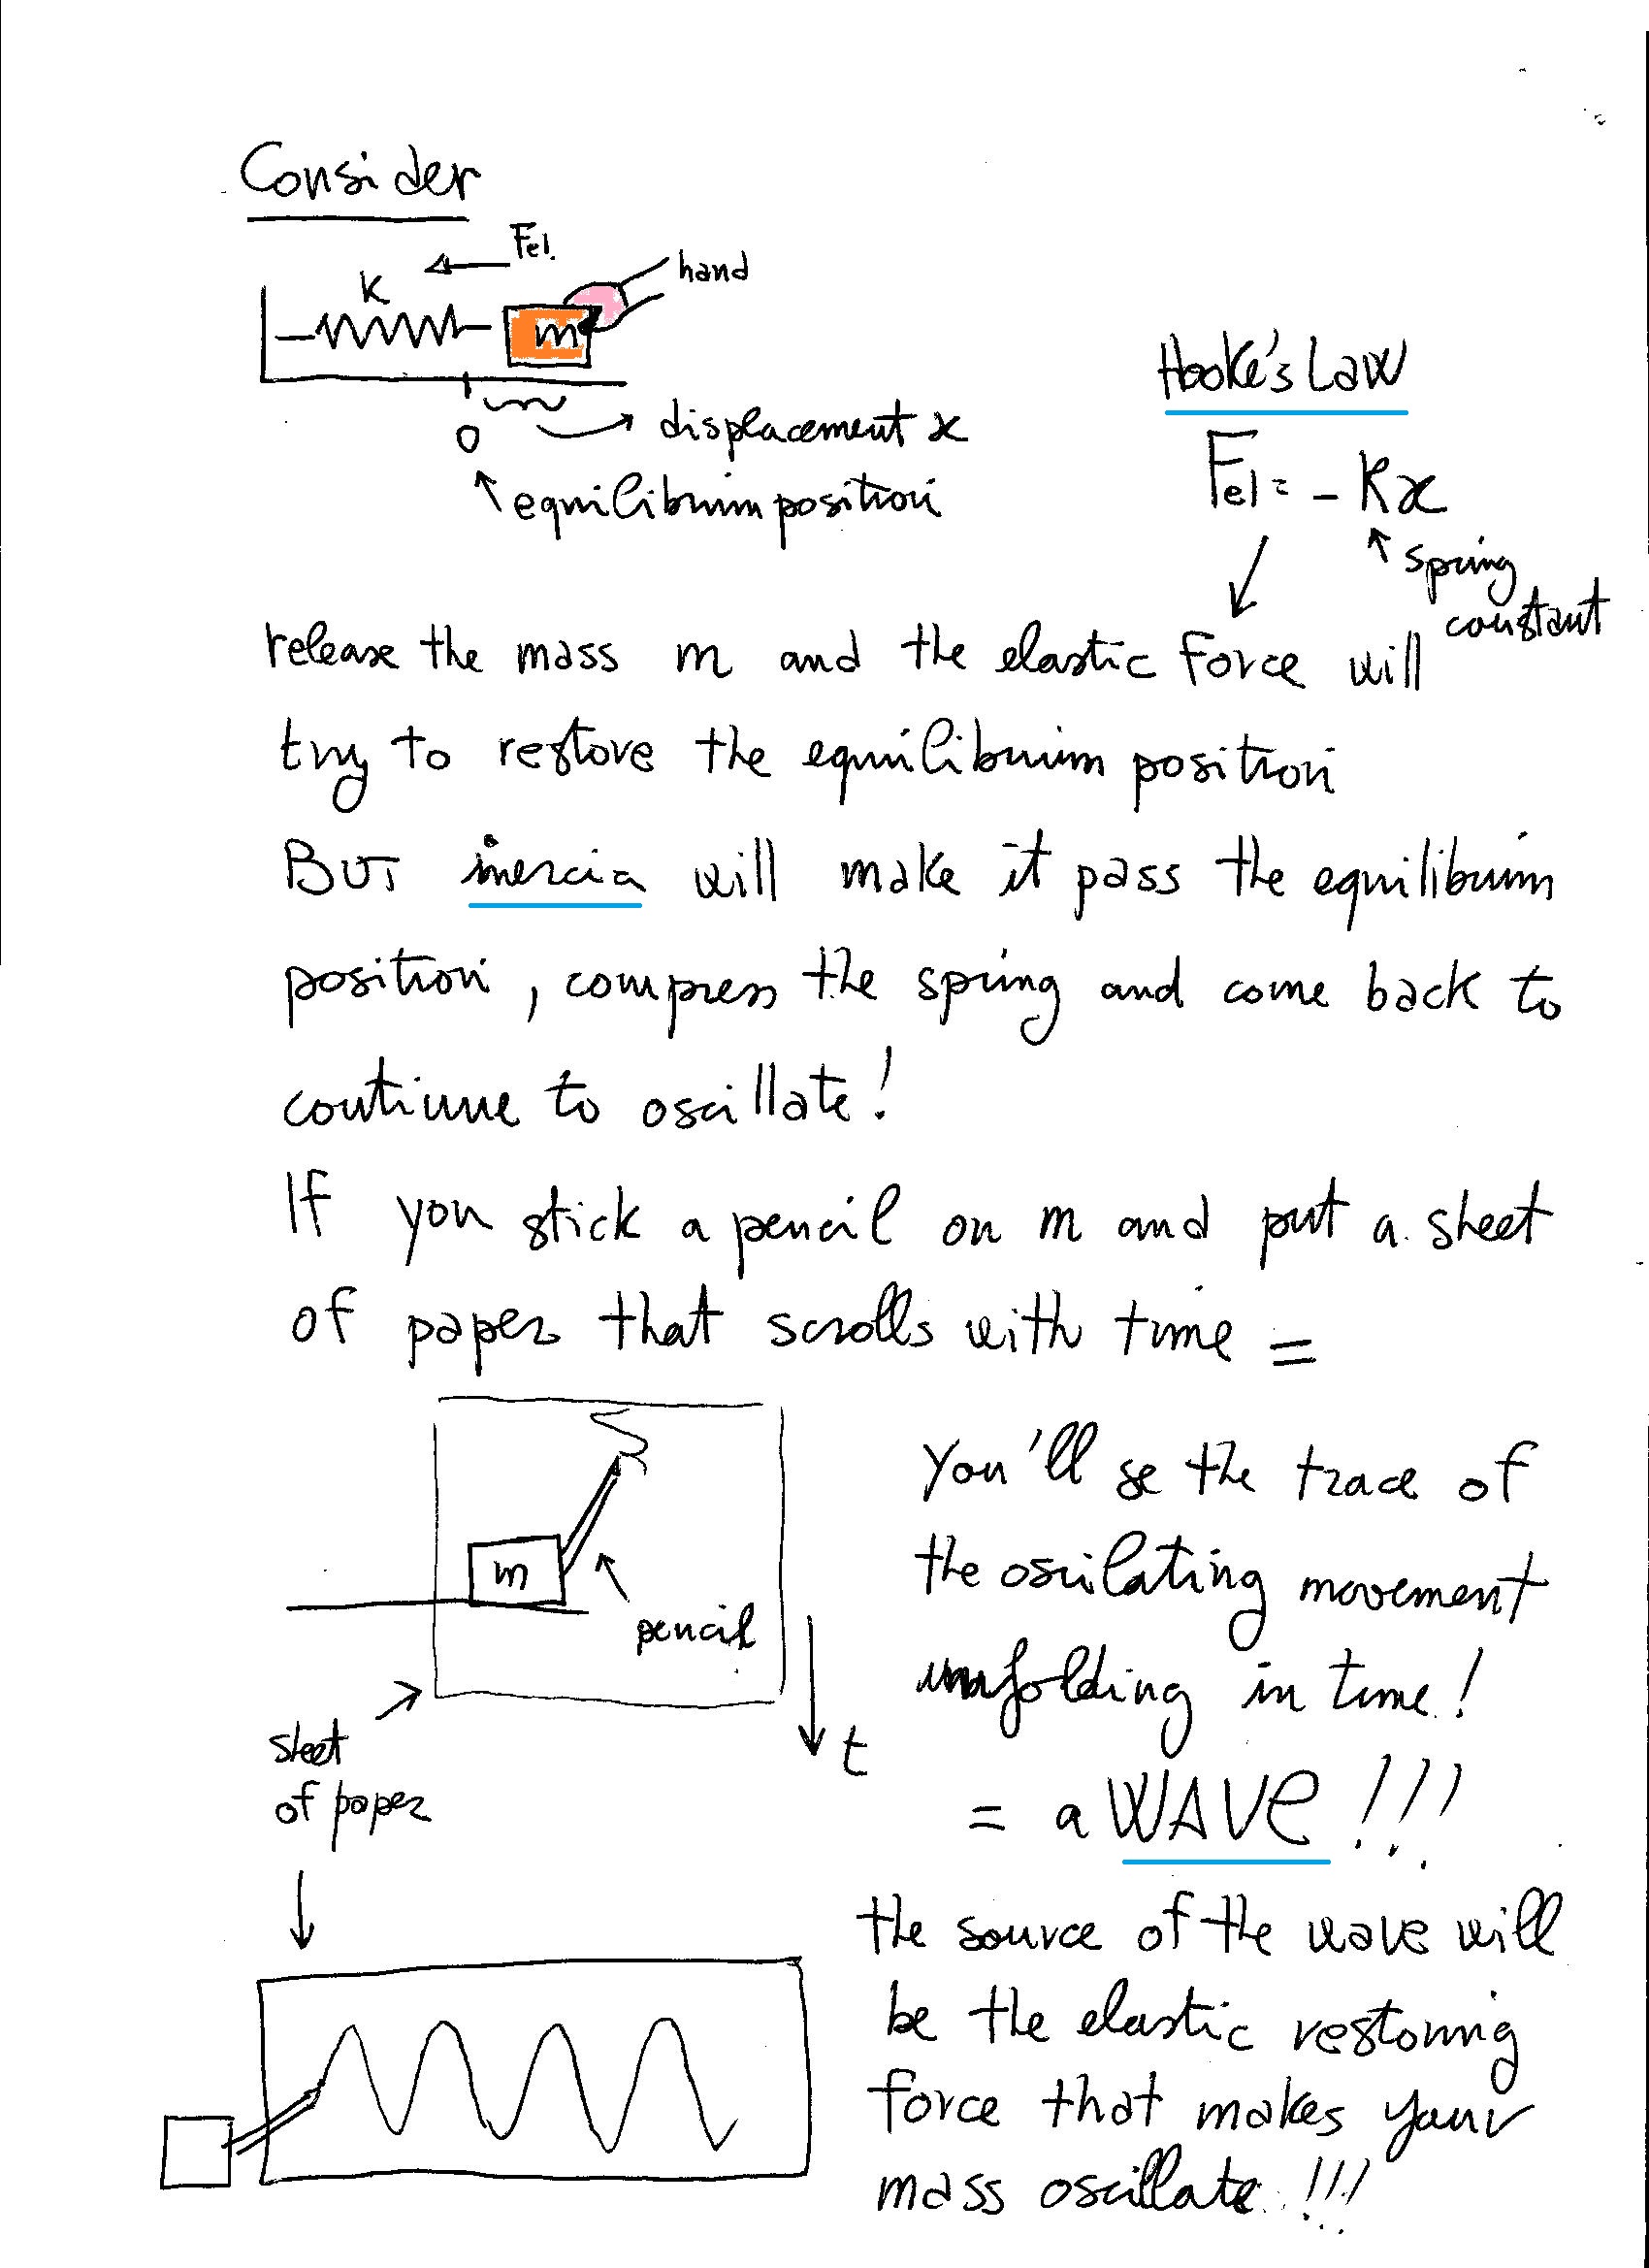 Consider
Fel.
K
hand
m
0
displacement x
equilibrium position
Hooke's Law
Fel = - Kx
spring
constant
release the mass m and the elastic force will
try to restore the equilibrium position
BUT inercia will make it pass the equilibrium
position, compress the spring and come back to
continue to oscillate!
If you stick a pencil on m and put a sheet
of paper that scrolls with time =
m
pencil
t
sheet
of paper
You'll se the trace of
the oscilating movement
unfolding in time!
= a WAVE!!!
the source of the wave will
be the elastic restoring
force that makes your
mass oscillate!!!